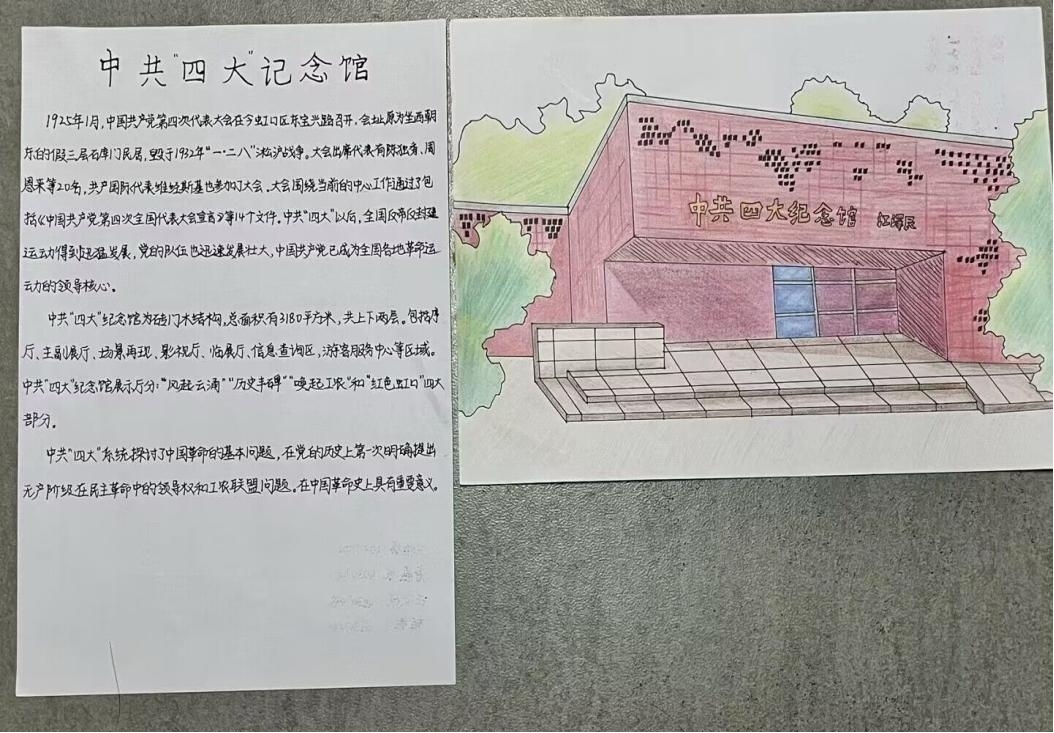 中共“四大”记念馆
1925年1月,中国共产党第四次代表大会在今虹口区东宝兴路召开,会址原为坐西朝
东的假三层石库门民居,毁于1932年“一·二八”淞沪战争。大会出席代表有陈独秀、周
恩来等20名,共产国际代表维经斯基也参加了大会。大会围绕当前的中心工作通过了包
括《中国共产党第四次全国代表大会宣言》等14个文件。中共“四大”以后,全国反帝反封建
运动得到迅猛发展,党的队伍也迅速发展壮大,中国共产党已成为全国各地革命运
动的领导核心。
中共“四大”纪念馆为砖门木结构,总面积有3180平方米,共上下两层。包括序
厅、主副展厅、场景再现、影视厅、临展厅、信息查询区,游客服务中心等区域。
中共“四大”纪念馆展示厅分:“风起云涌”“历史丰碑”“唤起工农”和“红色虹口”四大
部分。
中共“四大”系统探讨了中国革命的基本问题,在党的历史上第一次明确提出
无产阶级在民主革命中的领导权和工农联盟问题。在中国革命史上具有重要意义。
中共四大纪念馆 江泽民